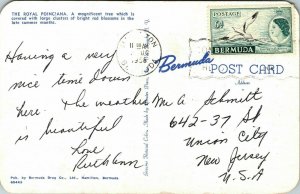 THE ROYAL POINCIANA. A magnificent tree which is
covered with large clusters of bright red blossoms in the
late summer months.
Having a very
nice time down
here. The weather
is beautiful
Love
Ruth Ann
Pub. by Bermuda Drug Co., Ltd., Hamilton, Bermuda
POSTAGE
BERMUDA
Bermuda
POST CARD
Address
Mr A Schmitt
642-37 St
Union City
New Jersey
U.S.A